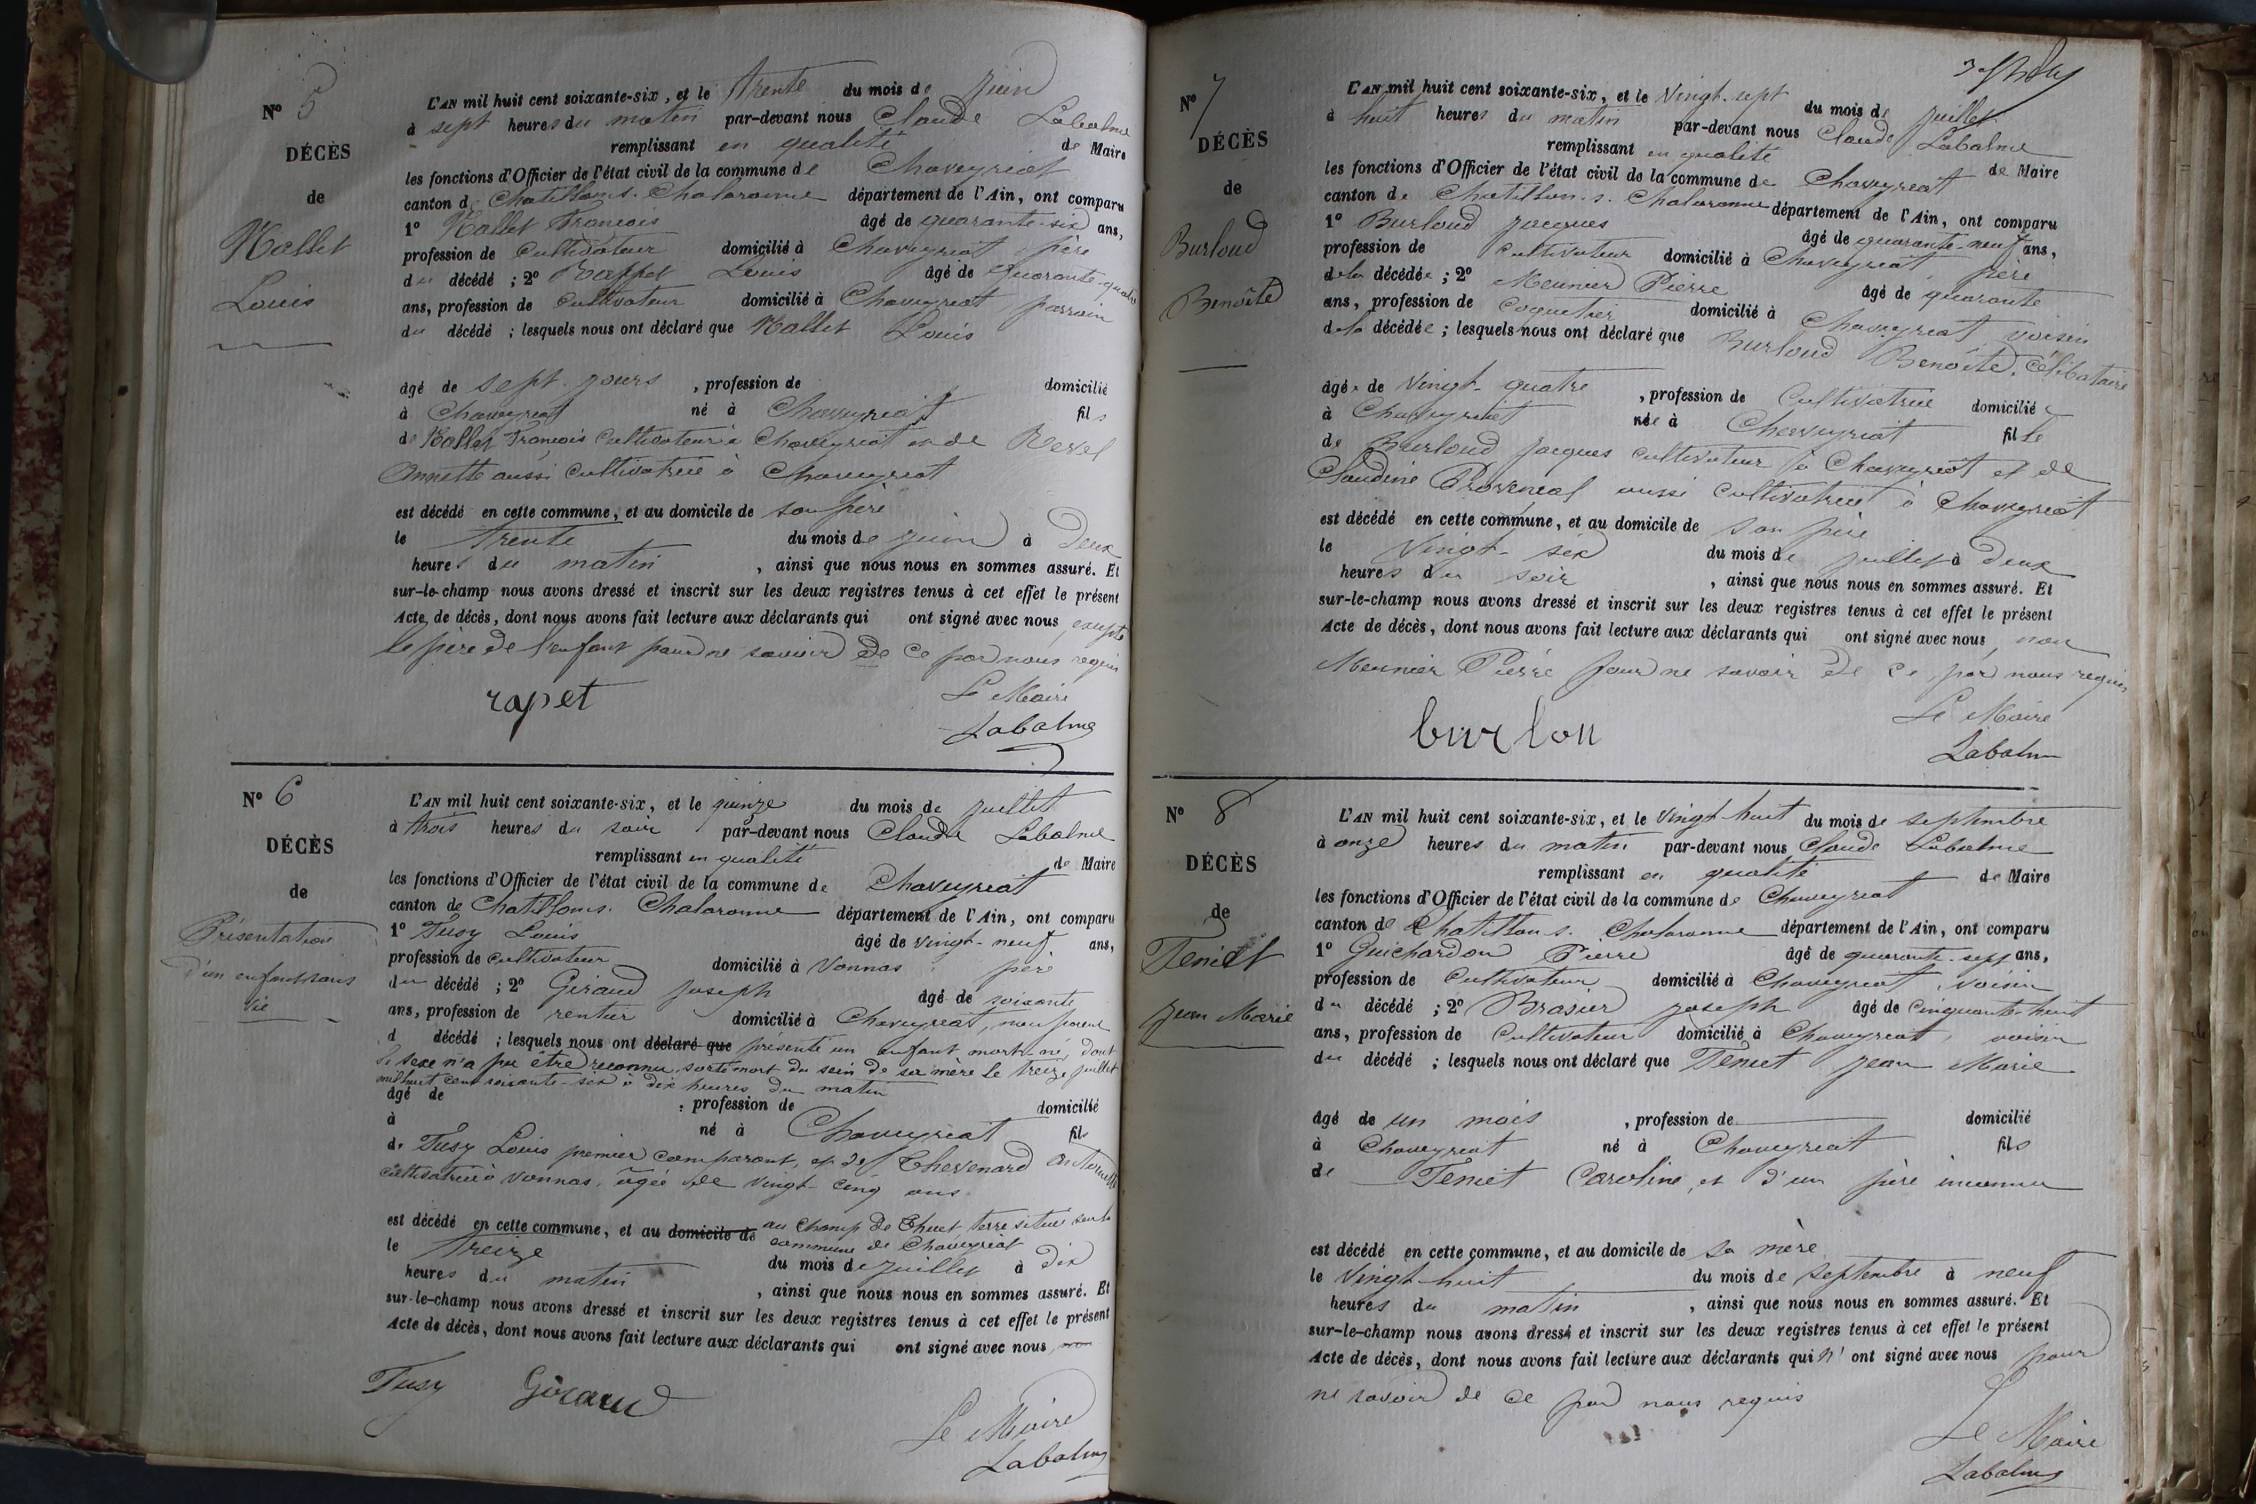 N° 5
DÉCÈS
de
Mallet
Louis
L'AN mil huit cent soixante-six, et le trente du mois de juin
à sept heures du matin par-devant nous Claude Labalme
remplissant en qualité de Maire
les fonctions d'Officier de l'état civil de la commune de Chaveyriat
canton de Chatillon s. Chalaronne département de l'Ain, ont comparu
1° Mallet François âgé de quarante-six ans,
profession de cultivateur domicilié à Chaveyriat, père
du décédé ; 2° Rappet Louis âgé de quarante-quatre
ans, profession de cultivateur domicilié à Chaveyriat parrain
du décédé ; lesquels nous ont déclaré que Mallet Louis
âgé de sept jours , profession de domicilié
à Chaveyriat né à Chaveyriat fils
de Mallet François cultivateur à Chaveyriat et de Revel
Annette aussi cultivatrice à Chaveyriat
est décédé en cette commune, et au domicile de son père
le trente du mois de juin à deux
heures du matin , ainsi que nous nous en sommes assuré. Et
sur-le-champ nous avons dressé et inscrit sur les deux registres tenus à cet effet le présent
Acte de décès, dont nous avons fait lecture aux déclarants qui ont signé avec nous, excepté
le père de l'enfant pour ne savoir de ce par nous requis
rapet
Le Maire
Labalme
N° 6
DÉCÈS
de
Présentation
d'un enfant sans
vie
L'AN mil huit cent soixante-six, et le quinze du mois de juillet
à trois heures du soir par-devant nous Claude Labalme
remplissant en qualité de Maire
les fonctions d'Officier de l'état civil de la commune de Chaveyriat
canton de Chatillon s. Chalaronne département de l'Ain, ont comparu
1° Tusy Louis âgé de vingt-neuf ans,
profession de cultivateur domicilié à Vonnas, père
du décédé ; 2° Giraud joseph âgé de soixante
ans, profession de rentier domicilié à Chaveyriat, non parent
d décédé ; lesquels nous ont déclaré que présenté un enfant mort-né, dont
le sexe n'a pu être reconnu, sorti mort du sein de sa mère le treize juillet
mil huit cent soixante-six à dix heures du matin
âgé de , profession de domicilié
à né à Chaveyriat fils
de Tusy Louis premier comparant, et de Chevenard Antoinette
cultivatrice à Vonnas, âgée de vingt-cinq ans.
est décédé en cette commune, et au domicile de au champ de Chuet terre située sur la
commune de Chaveyriat
le treize du mois de juillet à dix
heures du matin , ainsi que nous nous en sommes assuré. Et
sur-le-champ nous avons dressé et inscrit sur les deux registres tenus à cet effet le présent
Acte de décès, dont nous avons fait lecture aux déclarants qui ont signé avec nous, non
Tusy Giraud
Le Maire
Labalme
N° 7
DÉCÈS
de
Burloud
Benoîte
L'AN mil huit cent soixante-six, et le vingt-sept du mois de juillet
à huit heures du matin par-devant nous Claude Labalme
remplissant en qualité de Maire
les fonctions d'Officier de l'état civil de la commune de Chaveyriat
canton de Chatillon s. Chalaronne département de l'Ain, ont comparu
1° Burloud jacques âgé de quarante-neuf ans,
profession de cultivateur domicilié à Chaveyriat, père
de la décédée ; 2° Meunier Pierre âgé de quarante
ans, profession de coquetier domicilié à Chaveyriat, voisin
de la décédée ; lesquels nous ont déclaré que Burloud Benoîte, célibataire
âgée de vingt-quatre , profession de cultivatrice domiciliée
à Chaveyriat née à Chaveyriat fille
de Burloud jacques cultivateur à Chaveyriat et de
Claudine Provencal aussi cultivatrice à Chaveyriat
est décédé en cette commune, et au domicile de son père
le vingt-six du mois de juillet à deux
heures du soir , ainsi que nous nous en sommes assuré. Et
sur-le-champ nous avons dressé et inscrit sur les deux registres tenus à cet effet le présent
Acte de décès, dont nous avons fait lecture aux déclarants qui ont signé avec nous, non
Meunier Pierre pour ne savoir de ce par nous requis
burlou
Le Maire
Labalme
N° 8
DÉCÈS
de
Teniet
jean Marie
L'AN mil huit cent soixante-six, et le vingt-huit du mois de septembre
à onze heures du matin par-devant nous Claude Labalme
remplissant en qualité de Maire
les fonctions d'Officier de l'état civil de la commune de Chaveyriat
canton de Chatillon s. Chalaronne département de l'Ain, ont comparu
1° Guichardon Pierre âgé de quarante-sept ans,
profession de cultivateur domicilié à Chaveyriat, voisin
du décédé ; 2° Brasier joseph âgé de cinquante-huit
ans, profession de cultivateur domicilié à Chaveyriat, voisin
du décédé ; lesquels nous ont déclaré que Teniet jean Marie
âgé de un mois , profession de domicilié
à Chaveyriat né à Chaveyriat fils
de Teniet Caroline, et d'un père inconnu
est décédé en cette commune, et au domicile de sa mère
le vingt-huit du mois de septembre à neuf
heures du matin , ainsi que nous nous en sommes assuré. Et
sur-le-champ nous avons dressé et inscrit sur les deux registres tenus à cet effet le présent
Acte de décès, dont nous avons fait lecture aux déclarants qui n'ont signé avec nous pour
ne savoir de ce par nous requis
Le Maire
Labalme